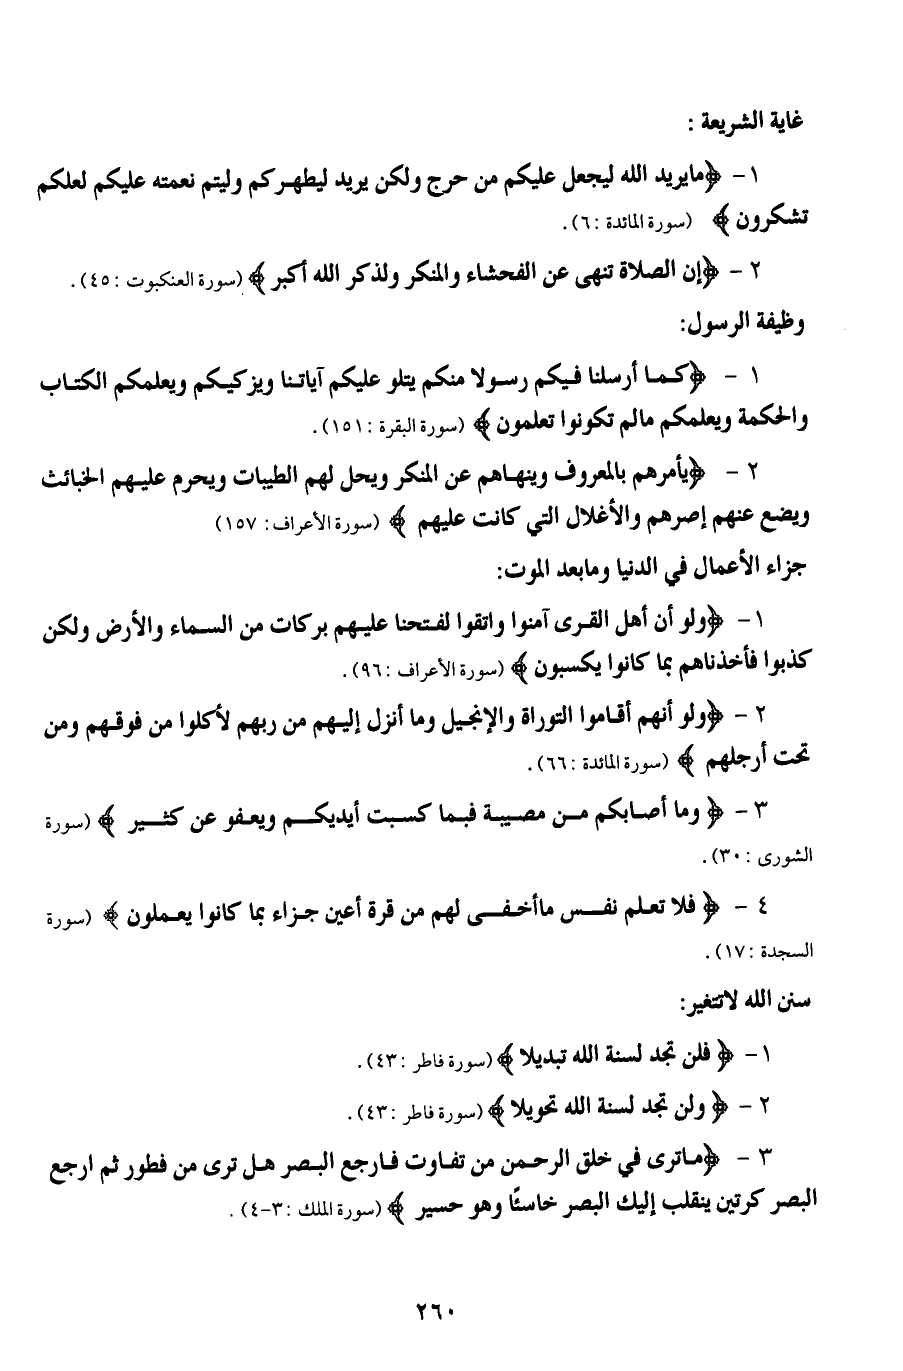 غاية الشريعة :
١- ﴿مايريد الله ليجعل عليكم من حرج ولكن يريد ليطهركم وليتم نعمته عليكم لعلكم
تشكرون ﴾ (سورة المائدة : ٦).
٢ - ﴿إن الصلاة تنهى عن الفحشاء والمنكر ولذكر الله أكبر ﴾ (سورة العنكبوت : ٤٥).
وظيفة الرسول:
١ - ﴿كما أرسلنا فيكم رسولا منكم يتلو عليكم آياتنا ويزكيكم ويعلمكم الكتاب
والحكمة ويعلمكم مالم تكونوا تعلمون ﴾ (سورة البقرة : ١٥١).
٢ - ﴿يأمرهم بالمعروف وينهاهم عن المنكر ويحل لهم الطيبات ويحرم عليهم الخبائث
ويضع عنهم إصرهم والأغلال التي كانت عليهم ﴾ (سورة الأعراف: ١٥٧)
جزاء الأعمال في الدنيا ومابعد الموت:
١- ﴿ولو أن أهل القرى آمنوا واتقوا لفتحنا عليهم بركات من السماء والأرض ولكن
كذبوا فأخذناهم بما كانوا يكسبون ﴾ (سورة الأعراف : ٩٦).
٢ - ﴿ولو أنهم أقاموا التوراة والإنجيل وما أنزل إليهم من ربهم لأكلوا من فوقهم ومن
تحت أرجلهم ﴾ (سورة المائدة : ٦٦).
٣ - ﴿ وما أصابكم من مصيبة فبما كسبت أيديكم ويعفو عن كثير ﴾ (سورة
الشورى : ٣٠).
٤ - ﴿ فلا تعلم نفس ماأخفى لهم من قرة أعين جزاء بما كانوا يعملون ﴾ (سورة
السجدة : ١٧).
سنن الله لاتتغير:
١- ﴿ فلن تجد لسنة الله تبديلا ﴾ (سورة فاطر : ٤٣).
٢ - ﴿ ولن تجد لسنة الله تحويلا ﴾ (سورة فاطر : ٤٣).
٣ - ﴿ماترى في خلق الرحمن من تفاوت فارجع البصر هل ترى من فطور ثم ارجع
البصر كرتين ينقلب إليك البصر خاسئًا وهو حسير ﴾ (سورة الملك : ٣-٤) .
٢٦٠